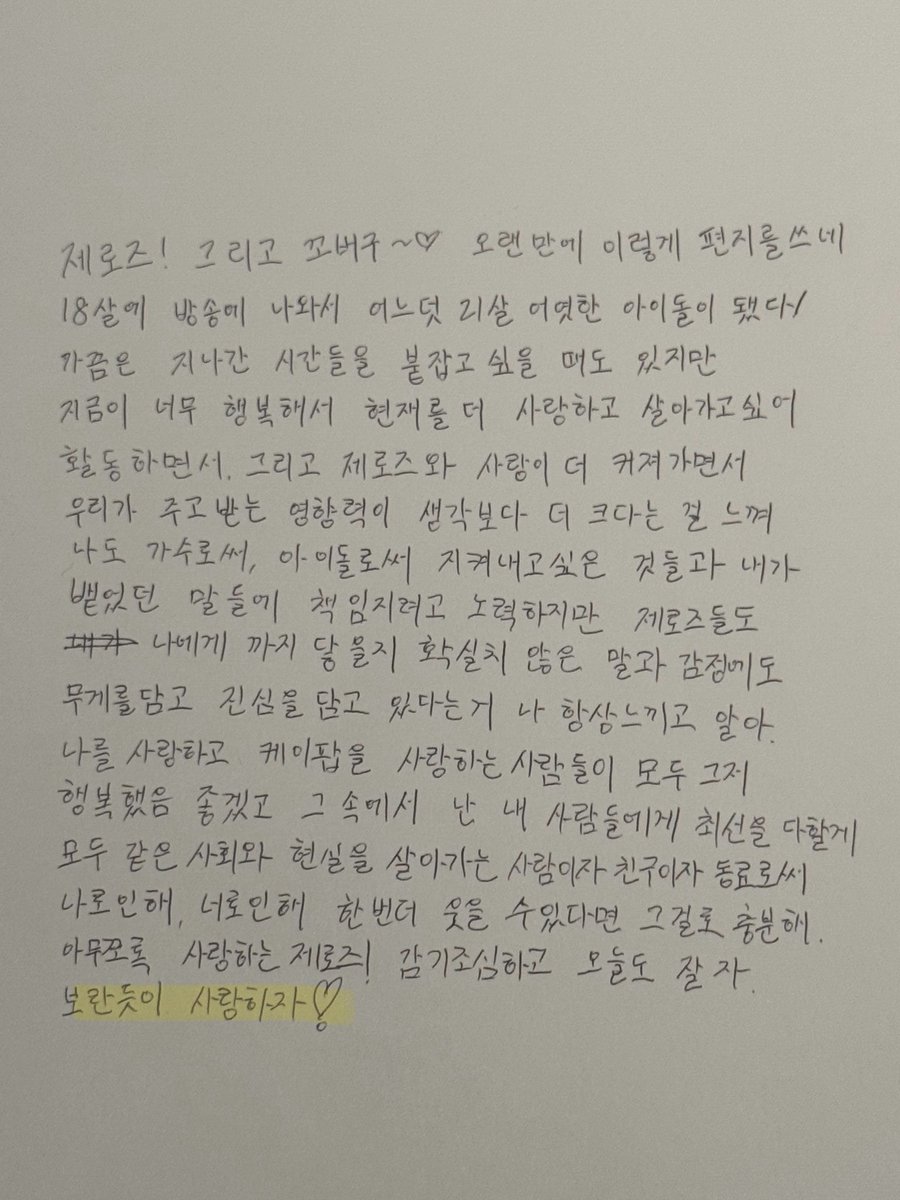 제로즈! 그리고 꼬버구~♡ 오랜만에 이렇게 편지를쓰네
18살에 방송에 나와서 어느덧 21살 어엿한 아이돌이 됐다!
가끔은 지나간 시간들을 붙잡고 싶을 때도 있지만
지금이 너무 행복해서 현재를 더 사랑하고 살아가고싶어
활동하면서. 그리고 제로즈와 사랑이 더 커져가면서
우리가 주고받는 영향력이 생각보다 더 크다는 걸 느껴
나도 가수로써, 아이돌로써 지켜내고싶은 것들과 내가
뱉었던 말들에 책임지려고 노력하지만 제로즈들도
나에게 까지 닿을지 확실치 않은 말과 감정에도
무게를담고 진심을 담고 있다는거 나 항상느끼고 알아.
나를 사랑하고 케이팝을 사랑하는 사람들이 모두 그저
행복했음 좋겠고 그 속에서 난 내 사람들에게 최선을 다할게
모두 같은 사회와 현실을 살아가는 사람이자 친구이자 동료로써
나로인해, 너로인해 한번더 웃을 수있다면 그걸로 충분해.
아무쪼록 사랑하는 제로즈! 감기조심하고 오늘도 잘 자.
보란듯이 사랑하자♡